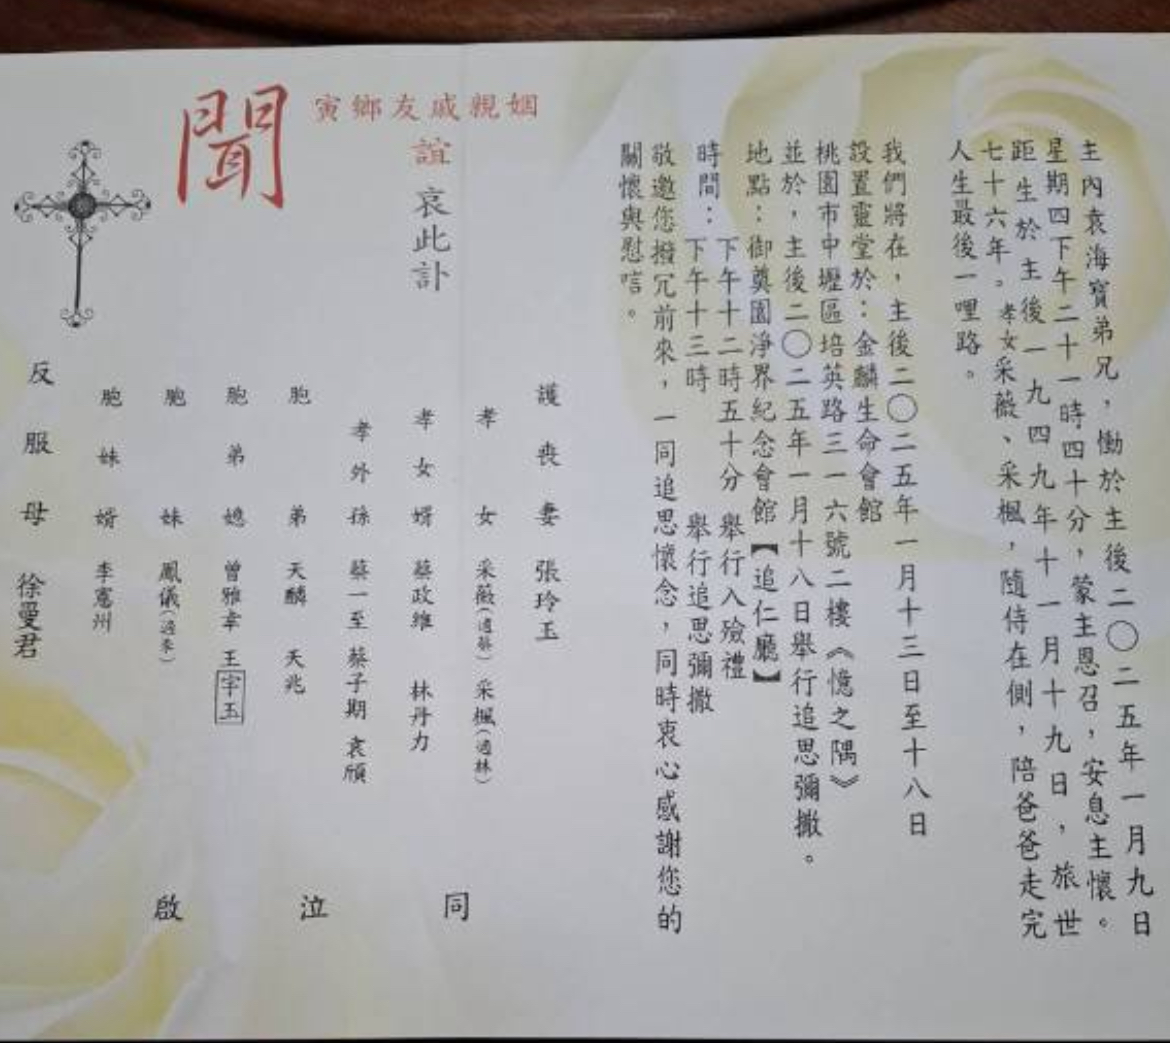 主內袁海寶弟兄，慟於主後二〇二五年一月九日
星期四下午二十一時四十分，蒙主恩召，安息主懷。
距生於主後一九四九年十一月十九日，旅世
七十六年。孝女采薇、采楓，隨侍在側，陪爸爸走完
人生最後一哩路。
我們將在，主後二〇二五年一月十三日至十八日
設置靈堂於：金麟生命會館
桃園市中壢區培英路三一六號二樓《憶之隅》
並於，主後二〇二五年一月十八日舉行追思彌撒。
地點：御奠園淨界紀念會館【追仁廳】
時間：下午十二時五十分 舉行入殮禮
下午十三時 舉行追思彌撒
敬邀您撥冗前來，一同追思懷念，同時衷心感謝您的
關懷與慰唁。
姻親戚友鄉寅
誼哀此訃
聞
護喪妻 張玲玉
孝女 采薇(適蔡) 采楓(適林)
孝女婿 蔡政維 林丹力
孝外孫 蔡一至 蔡子期 袁頎
胞弟 天麟 天兆
胞弟媳 曾雅幸 王字玉
胞妹 鳳儀(適李)
胞妹婿 李憲州
反服母 徐曼君
同泣啟